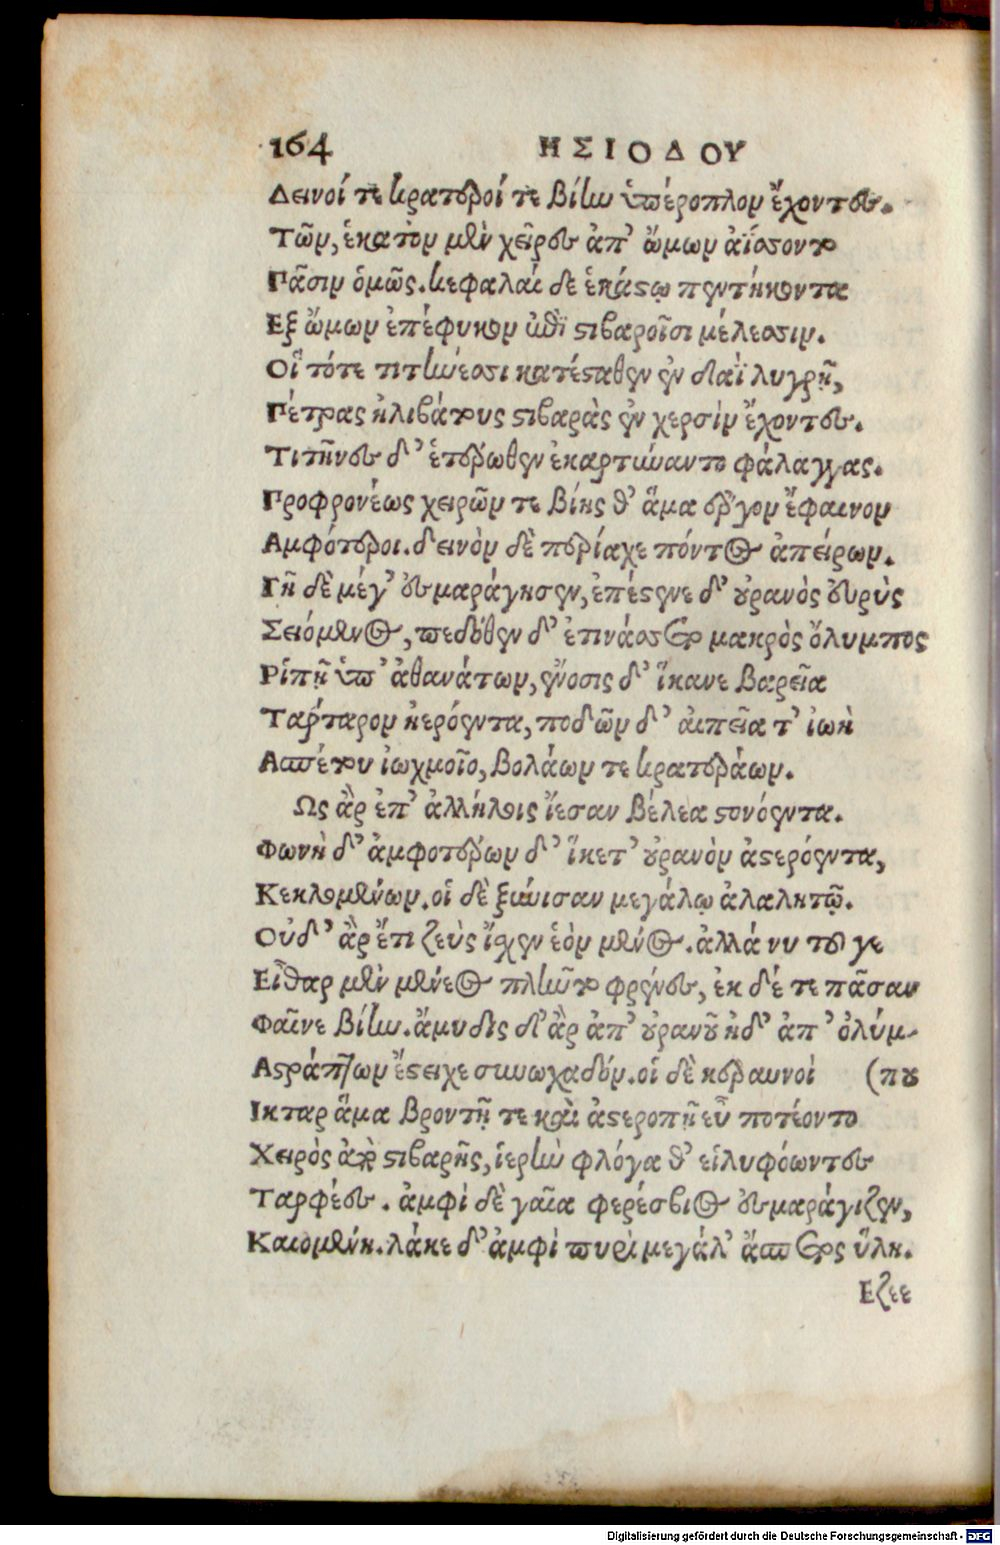 164 ΗΣΙΟΔΟΥ
Δεινοί τε κρατεροί τε βίην ὑπέροπλον ἔχοντες.
Τῶν, ἑκατὸν μὲν χεῖρες ἀπ' ὤμων ἀΐσσοντο
Πᾶσιν ὁμῶς. κεφαλαὶ δὲ ἑκάστῳ πεντήκοντα
Εξ ὤμων ἐπέφυκον ἐπὶ στιβαροῖσι μέλεσσιν.
Οἳ τότε τιτήνεσσι κατέσταθεν ἐν δαῒ λυγρῇ,
Πέτρας ἠλιβάτους στιβαρὰς ἐν χερσὶν ἔχοντες.
Τιτῆνες δ' ἑτέρωθεν ἐκαρτύναντο φάλαγγας.
Προφρονέως χειρῶν τε βίης θ' ἅμα ἔργον ἔφαινον
Αμφότεροι. δεινὸν δὲ περίαχε πόντος ἀπείρων.
Γῆ δὲ μέγ' ἐσμαράγησεν, ἐπέστενε δ' οὐρανὸς εὐρὺς
Σειόμενος, πεδόθεν δ' ἐτινάσσετο μακρὸς ὄλυμπος
Ρίπῇ ὑπ' ἀθανάτων, ἔνοσις δ' ἵκανε βαρεῖα
Τάρταρον ἠερόεντα, ποδῶν δ' αἰπεῖα τ' ἰωὴ
Ασπέτου ἰωχμοῖο, βολάων τε κρατεράων.
Ως ἂρ ἐπ' ἀλλήλοις ἵεσαν βέλεα στονόεντα.
Φωνὴ δ' ἀμφοτέρων δ' ἵκετ' οὐρανὸν ἀστερόεντα,
Κεκλομένων. οἱ δὲ ξύνισαν μεγάλῳ ἀλαλητῷ.
Οὐδ' ἂρ ἔτι ζεὺς ἴσχεν ἑὸν μένος. ἀλλά νυ τοῦ γε
Εἶθαρ μὲν μένεος πλῆντο φρένες, ἐκ δέ τε πᾶσαν
Φαῖνε βίην. ἄμυδις δ' ἂρ ἀπ' οὐρανοῦ ἠδ' ἀπ' ὀλύμ-
Αστράπτων ἔστειχε συνωχαδόν. οἱ δὲ κεραυνοὶ (που
Ικταρ ἅμα βροντῇ τε καὶ ἀστεροπῇ εὖ ποτέοντο
Χειρὸς ἀπὸ στιβαρῆς, ἱερὴν φλόγα θ' εἰλυφόωντες
Ταρφέες. ἀμφὶ δὲ γαῖα φερέσβιος ἐσμαράγιζεν,
Καιομένη. λάκε δ' ἀμφὶ πυρὶ μεγάλ' ἄσπετος ὕλη.
Εζεε
Digitalisierung gefördert durch die Deutsche Forschungsgemeinschaft - DFG